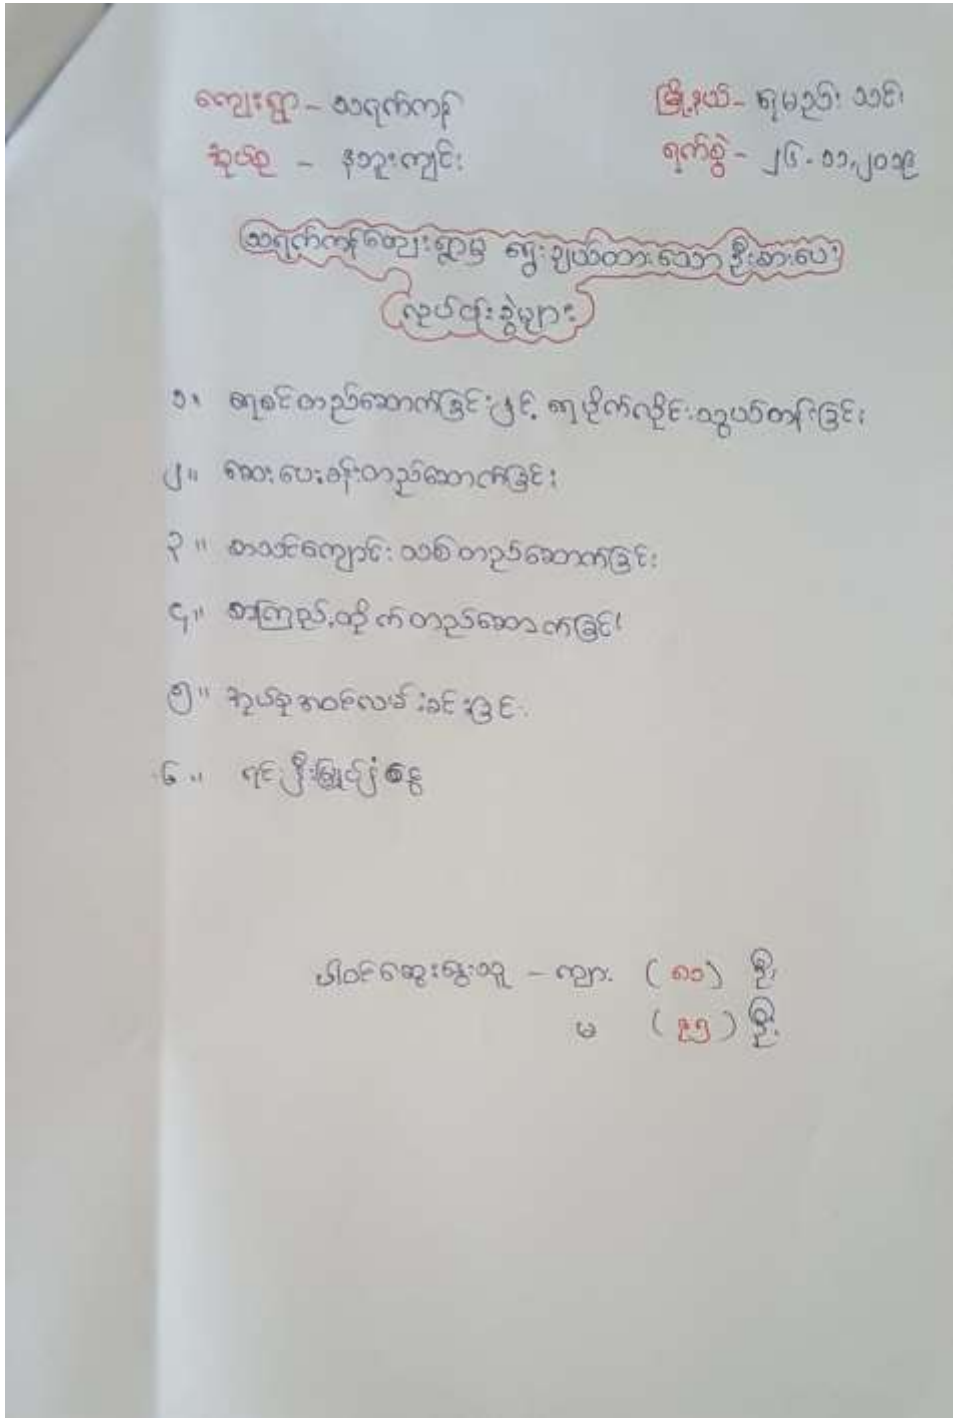 ကျေးရွာ - သရက်ကန် မြို့နယ် - ရမည်းသင်း
အုပ်စု - နဘူးကျင်း ရက်စွဲ - ၂၆.၁၁.၂၀၁၉
သရက်ကန်ကျေးရွာမှ ရွေးချယ်ထားသော ဦးစားပေး
လုပ်ငန်းခွဲများ
၁။ ရေစင်တည်ဆောက်ခြင်းနှင့် ရေပိုက်လိုင်းသွယ်တန်းခြင်း
၂။ ဆေးပေးခန်းတည်ဆောက်ခြင်း
၃။ စာသင်ကျောင်းသစ်တည်ဆောက်ခြင်း
၄။ စာကြည့်တိုက်တည်ဆောက်ခြင်း
၅။ အုပ်စုအဝင်လမ်းခင်းခြင်း
၆။ ရင်းနှီးမြှုပ်နှံငွေ
ပါဝင်ဆွေးနွေးသူ - ကျား (၈၁) ဦး
မ (၃၅) ဦး